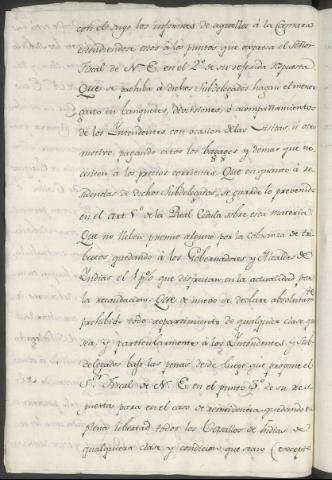 con el sayo los informes de aquellos á la Camara
estendiendose esos á los puntos que expresa el Señor
Fiscal de N.E. en el 2º de su referida respuesta
Que se prohiba á dichos Subdelegados hagan el menor
gasto en banquetes, diversiones, ó acompañamientos
de los Intendentes con ocasion de las Visitas, ú otro
motivo, pagando estos los bagages y demas que ne-
cesiten á los precios corrientes. Que en quanto á re-
sidencias de dichos Subdelegados, se guarde lo prevenido
en el art. Vº de la Real Cédula sobre esta materia.
Que no lleben premio alguno por la cobranza de tri-
butos quedando á los Gobernadores y Alcaldes de
Indias el 1 pº que disfrutan en la actualidad por
la recaudacion. Que de nuevo se declare absolutamte
prohibido todo repartimiento de qualquiera clase que
sea, y particularmente á los Intendentes y Sub-
delegados bajo las penas desde luego que propone el
Sr. Fiscal de N.E. en el punto 3º de su res-
puesta para en el caso de reincidencia, quedando en
plena libertad todos los Vasallos de Indias de
qualquiera clase y condicion que sean (excepto